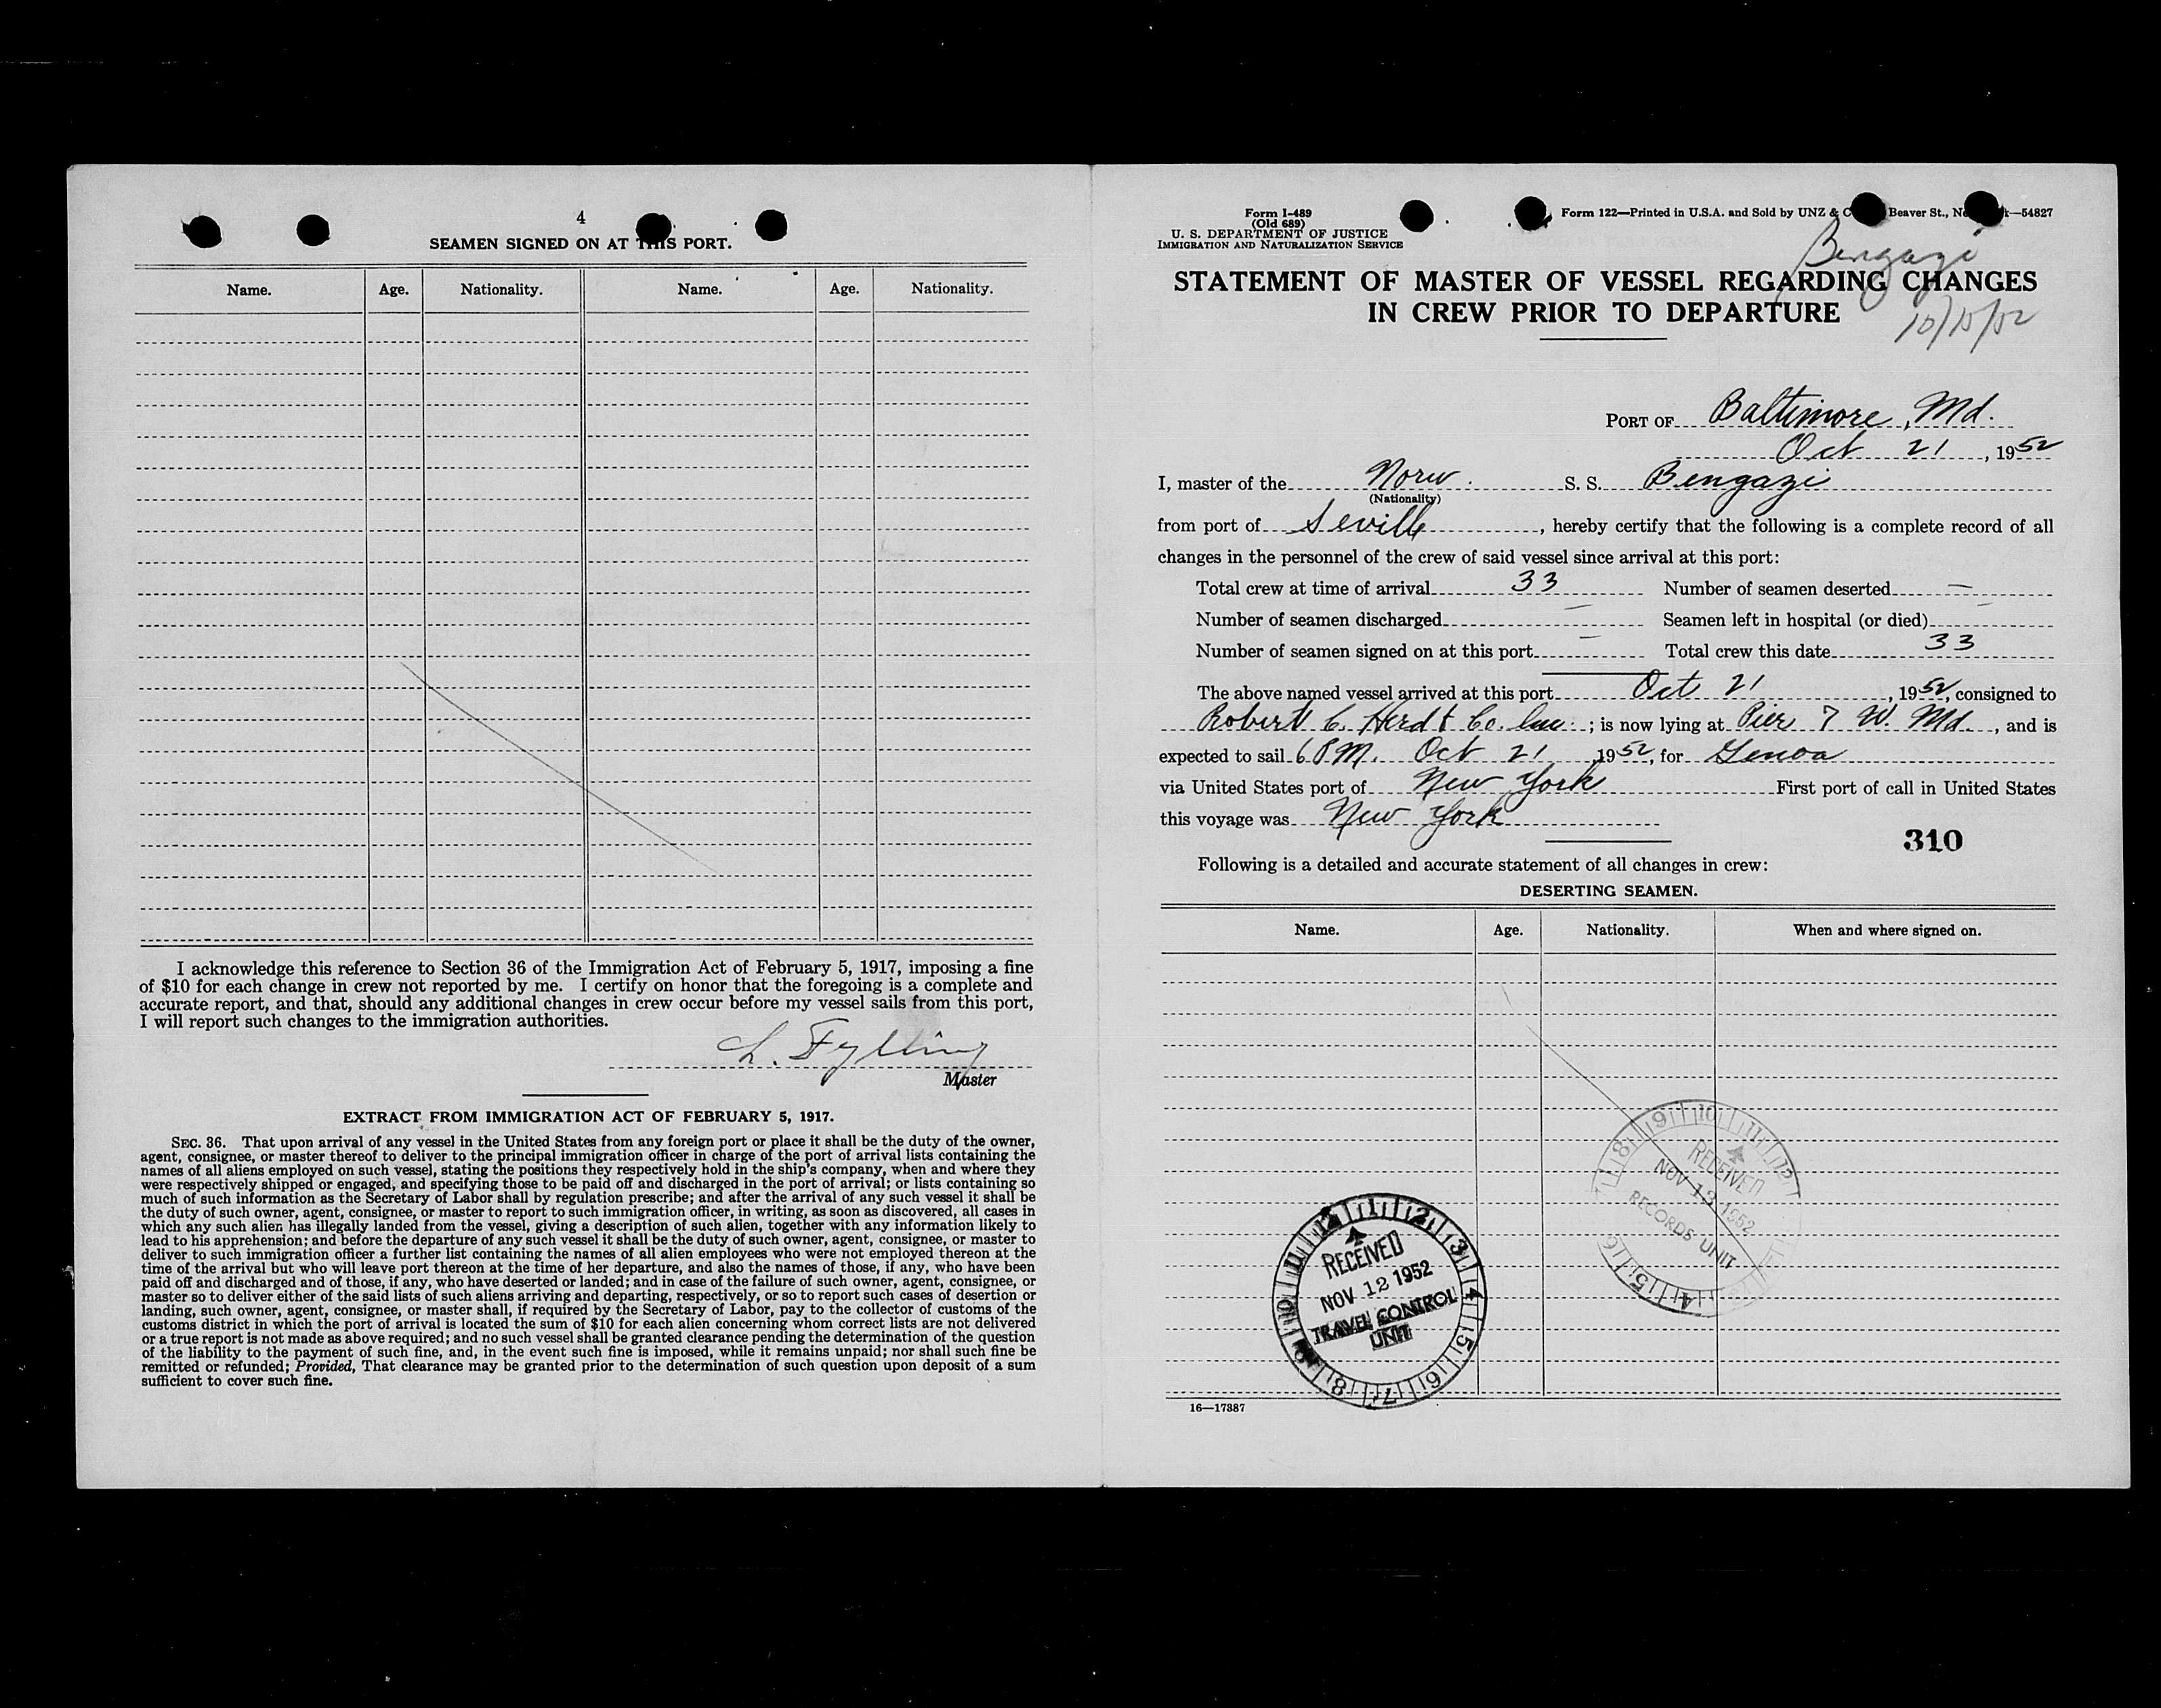 4
SEAMEN SIGNED ON AT THIS PORT.
Name. Age. Nationality. Name. Age. Nationality.
I acknowledge this reference to Section 36 of the Immigration Act of February 5, 1917, imposing a fine
of $10 for each change in crew not reported by me. I certify on honor that the foregoing is a complete and
accurate report, and that, should any additional changes in crew occur before my vessel sails from this port,
I will report such changes to the immigration authorities.
L. Fylling
Master
EXTRACT FROM IMMIGRATION ACT OF FEBRUARY 5, 1917.
SEC. 36. That upon arrival of any vessel in the United States from any foreign port or place it shall be the duty of the owner,
agent, consignee, or master thereof to deliver to the principal immigration officer in charge of the port of arrival lists containing the
names of all aliens employed on such vessel, stating the positions they respectively hold in the ship's company, when and where they
were respectively shipped or engaged, and specifying those to be paid off and discharged in the port of arrival; or lists containing so
much of such information as the Secretary of Labor shall by regulation prescribe; and after the arrival of any such vessel it shall be
the duty of such owner, agent, consignee, or master to report to such immigration officer, in writing, as soon as discovered, all cases in
which any such alien has illegally landed from the vessel, giving a description of such alien, together with any information likely to
lead to his apprehension; and before the departure of any such vessel it shall be the duty of such owner, agent, consignee, or master to
deliver to such immigration officer a further list containing the names of all alien employees who were not employed thereon at the
time of the arrival but who will leave port thereon at the time of her departure, and also the names of those, if any, who have been
paid off and discharged and of those, if any, who have deserted or landed; and in case of the failure of such owner, agent, consignee, or
master so to deliver either of the said lists of such aliens arriving and departing, respectively, or so to report such cases of desertion or
landing, such owner, agent, consignee, or master shall, if required by the Secretary of Labor, pay to the collector of customs of the
customs district in which the port of arrival is located the sum of $10 for each alien concerning whom correct lists are not delivered
or a true report is not made as above required; and no such vessel shall be granted clearance pending the determination of the question
of the liability to the payment of such fine, and, in the event such fine is imposed, while it remains unpaid; nor shall such fine be
remitted or refunded; Provided, That clearance may be granted prior to the determination of such question upon deposit of a sum
sufficient to cover such fine.
Form I-489
(Old 689)
U. S. DEPARTMENT OF JUSTICE
IMMIGRATION AND NATURALIZATION SERVICE
Form 122—Printed in U.S.A. and Sold by UNZ & C Beaver St., Ne —54827
Bengazi
STATEMENT OF MASTER OF VESSEL REGARDING CHANGES
IN CREW PRIOR TO DEPARTURE
10/15/52
PORT OF Baltimore, Md.
Oct 21, 1952
I, master of the Norw. S. S. Bengazi
(Nationality)
from port of Seville, hereby certify that the following is a complete record of all
changes in the personnel of the crew of said vessel since arrival at this port:
Total crew at time of arrival 33 Number of seamen deserted —
Number of seamen discharged — Seamen left in hospital (or died) —
Number of seamen signed on at this port — Total crew this date 33
The above named vessel arrived at this port Oct 21, 1952, consigned to
Robert C. Herd & Co. Inc.; is now lying at Pier 7 W. Md., and is
expected to sail 6 P.M. Oct 21 1952, for Genoa
via United States port of New York First port of call in United States
this voyage was New York
310
Following is a detailed and accurate statement of all changes in crew:
DESERTING SEAMEN.
Name. Age. Nationality. When and where signed on.
RECEIVED
NOV 13 1952
RECORDS UNIT
RECEIVED
NOV 12 1952
TRAVEL CONTROL
UNIT
16—17387